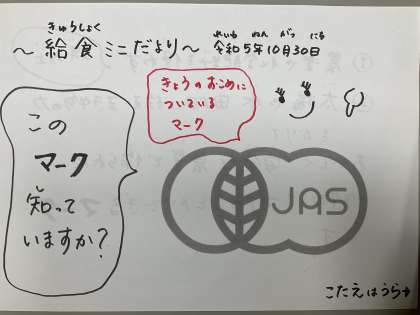 きゅうしょく
～給食ミニだより～
れいわ ねん がつ にち
令和5年10月30日
きょうのおこめに
ついている
マーク
この
マーク
し
知って
いますか？
JAS
こたえはうら→